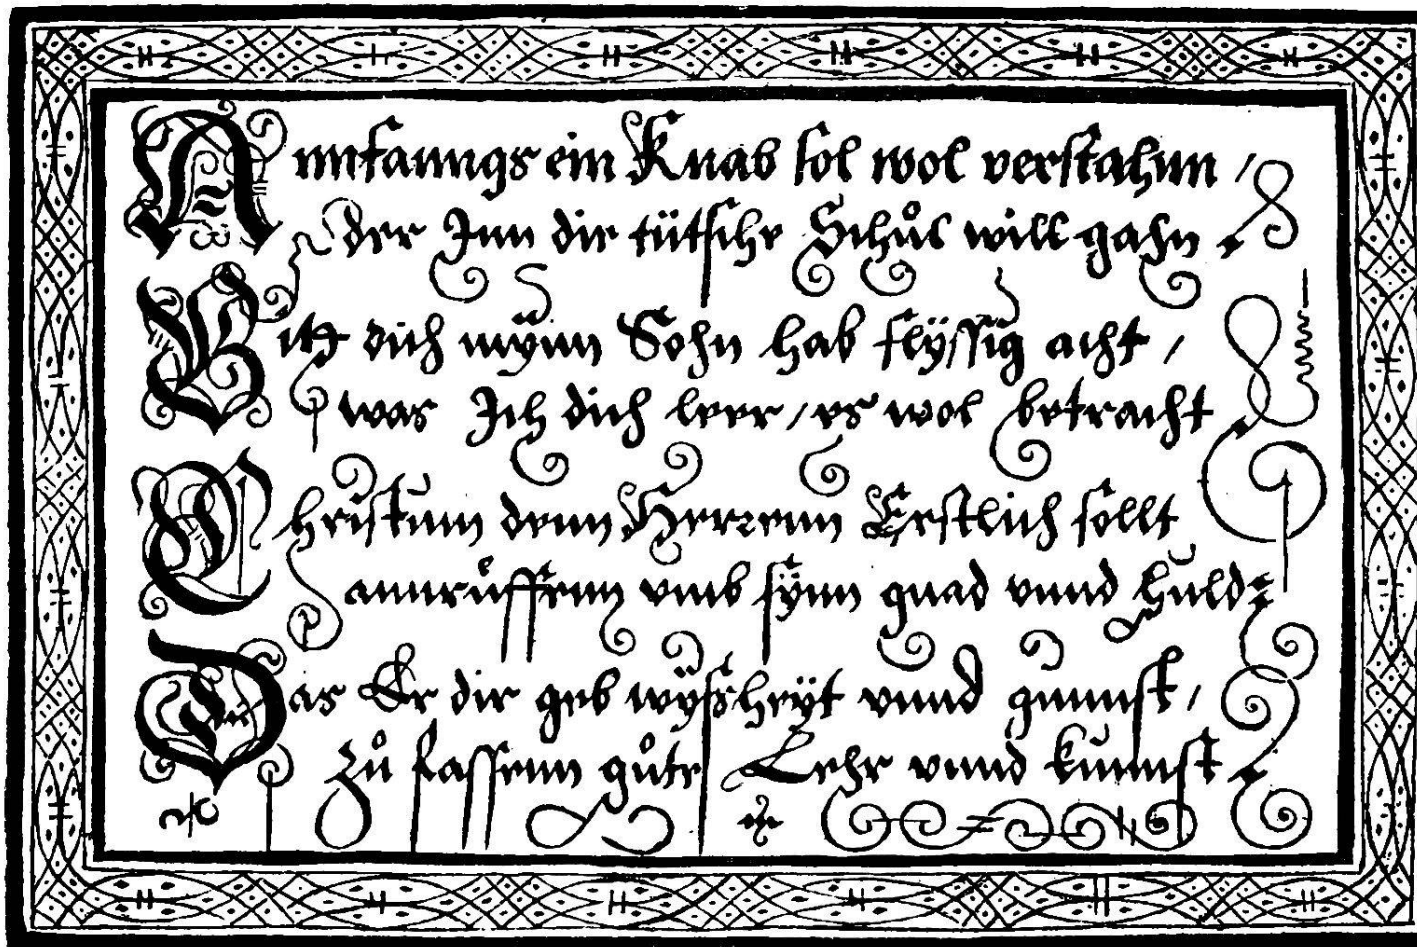 Annfanngs ein Knab sol wol verstahnn /
der Inn die tütsche Schůl will gahn
Bitt dich mÿnn Sohn hab flÿssig acht /
was Ich dich leer / es wol betracht
Christum denn Herrenn Erstlich sollt
annrůffenn vmb sÿnn gnad vnnd huld
Das Er dir geb wÿßheÿt vnnd gunnst /
Zů fassenn gůte Lehr vnnd kunnst